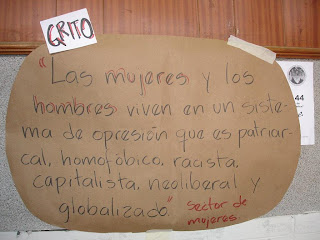 GRITO
"Las mujeres y los
hombres viven en un siste-
ma de opresión que es patriar-
cal, homofóbico, racista,
capitalista, neoliberal y
globalizado" sector de
mujeres
44